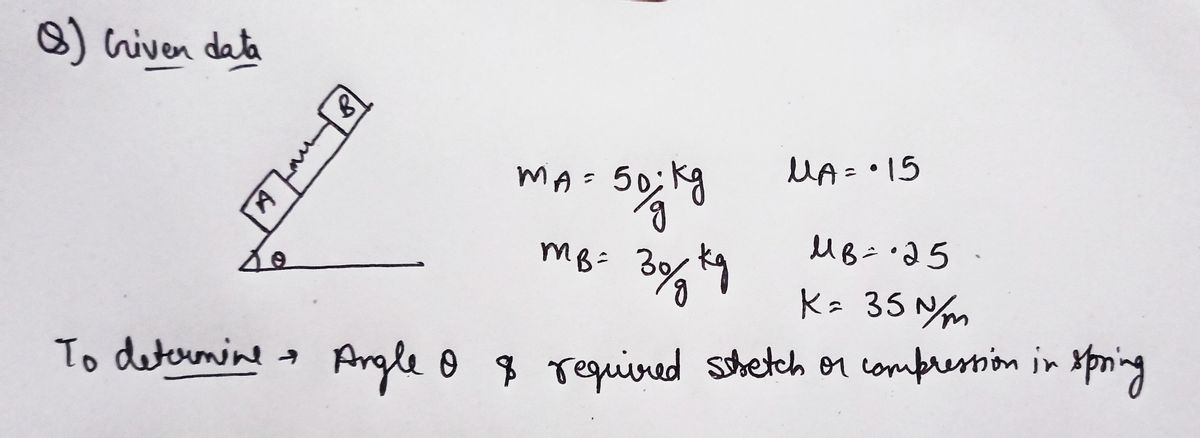 Q) Given data
B
A
θ
mA = 50/g kg μA = .15
mB = 30/g kg μB = .25
K = 35 N/m
To determine → Angle θ & required stretch or compression in spring